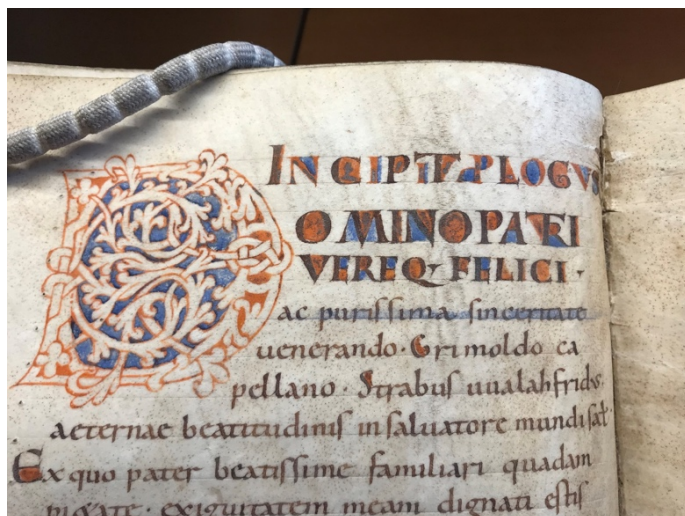 INCIPIT PLOGUS
DOMINO PATRI
VEREQ; FELICI.
ac purissima sinceritate
uenerando. Grimoldo ca
pellano. Strabus uualahfridus,
aeternae beatitudinis in saluatore mundi sal
Ex quo pater beatissime familiari quadam
exiguitatem meam dignati estis